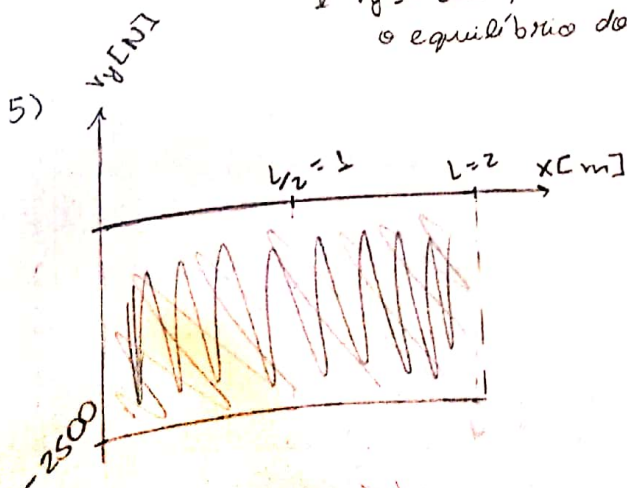 o equilíbrio do
5)
Vy[N]
L/2 = 1
L=2
x[m]
-2500